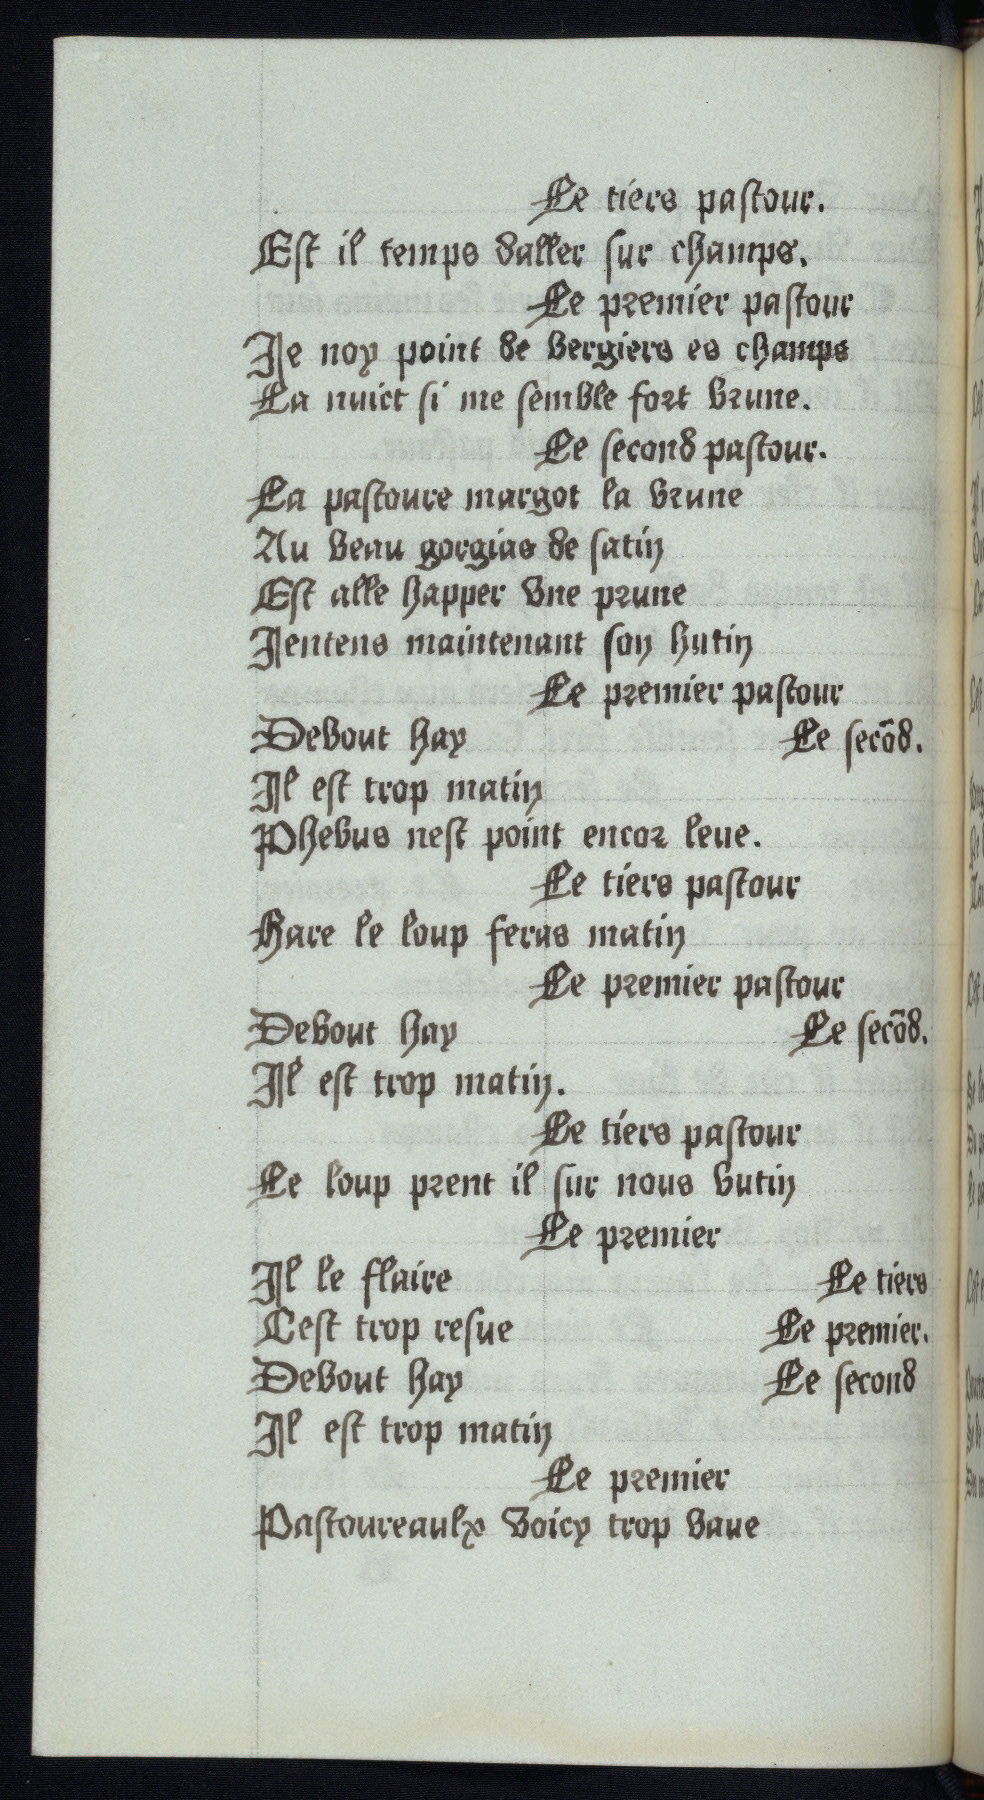 Le tiers pastour.
Est il temps daller sur champs.
Le premier pastour
Ie noy point de bergiers es champs
La nuict si me semble fort brune.
Le second pastour.
La pastoure margot la brune
Au beau gorgias de satin
Est alle happer vne prune
Ientens maintenant son hutin
Le premier pastour
Debout hay Le secõd.
Il est trop matin
Phebus nest point encor leue.
Le tiers pastour
Hare le loup feras matin
Le premier pastour
Debout hay Le secõd.
Il est trop matin.
Le tiers pastour
Le loup prent il sur nous butin
Le premier
Il le flaire Le tiers
Cest trop resue Le premier.
Debout hay Le second
Il est trop matin
Le premier
Pastoureaulx voicy trop baue